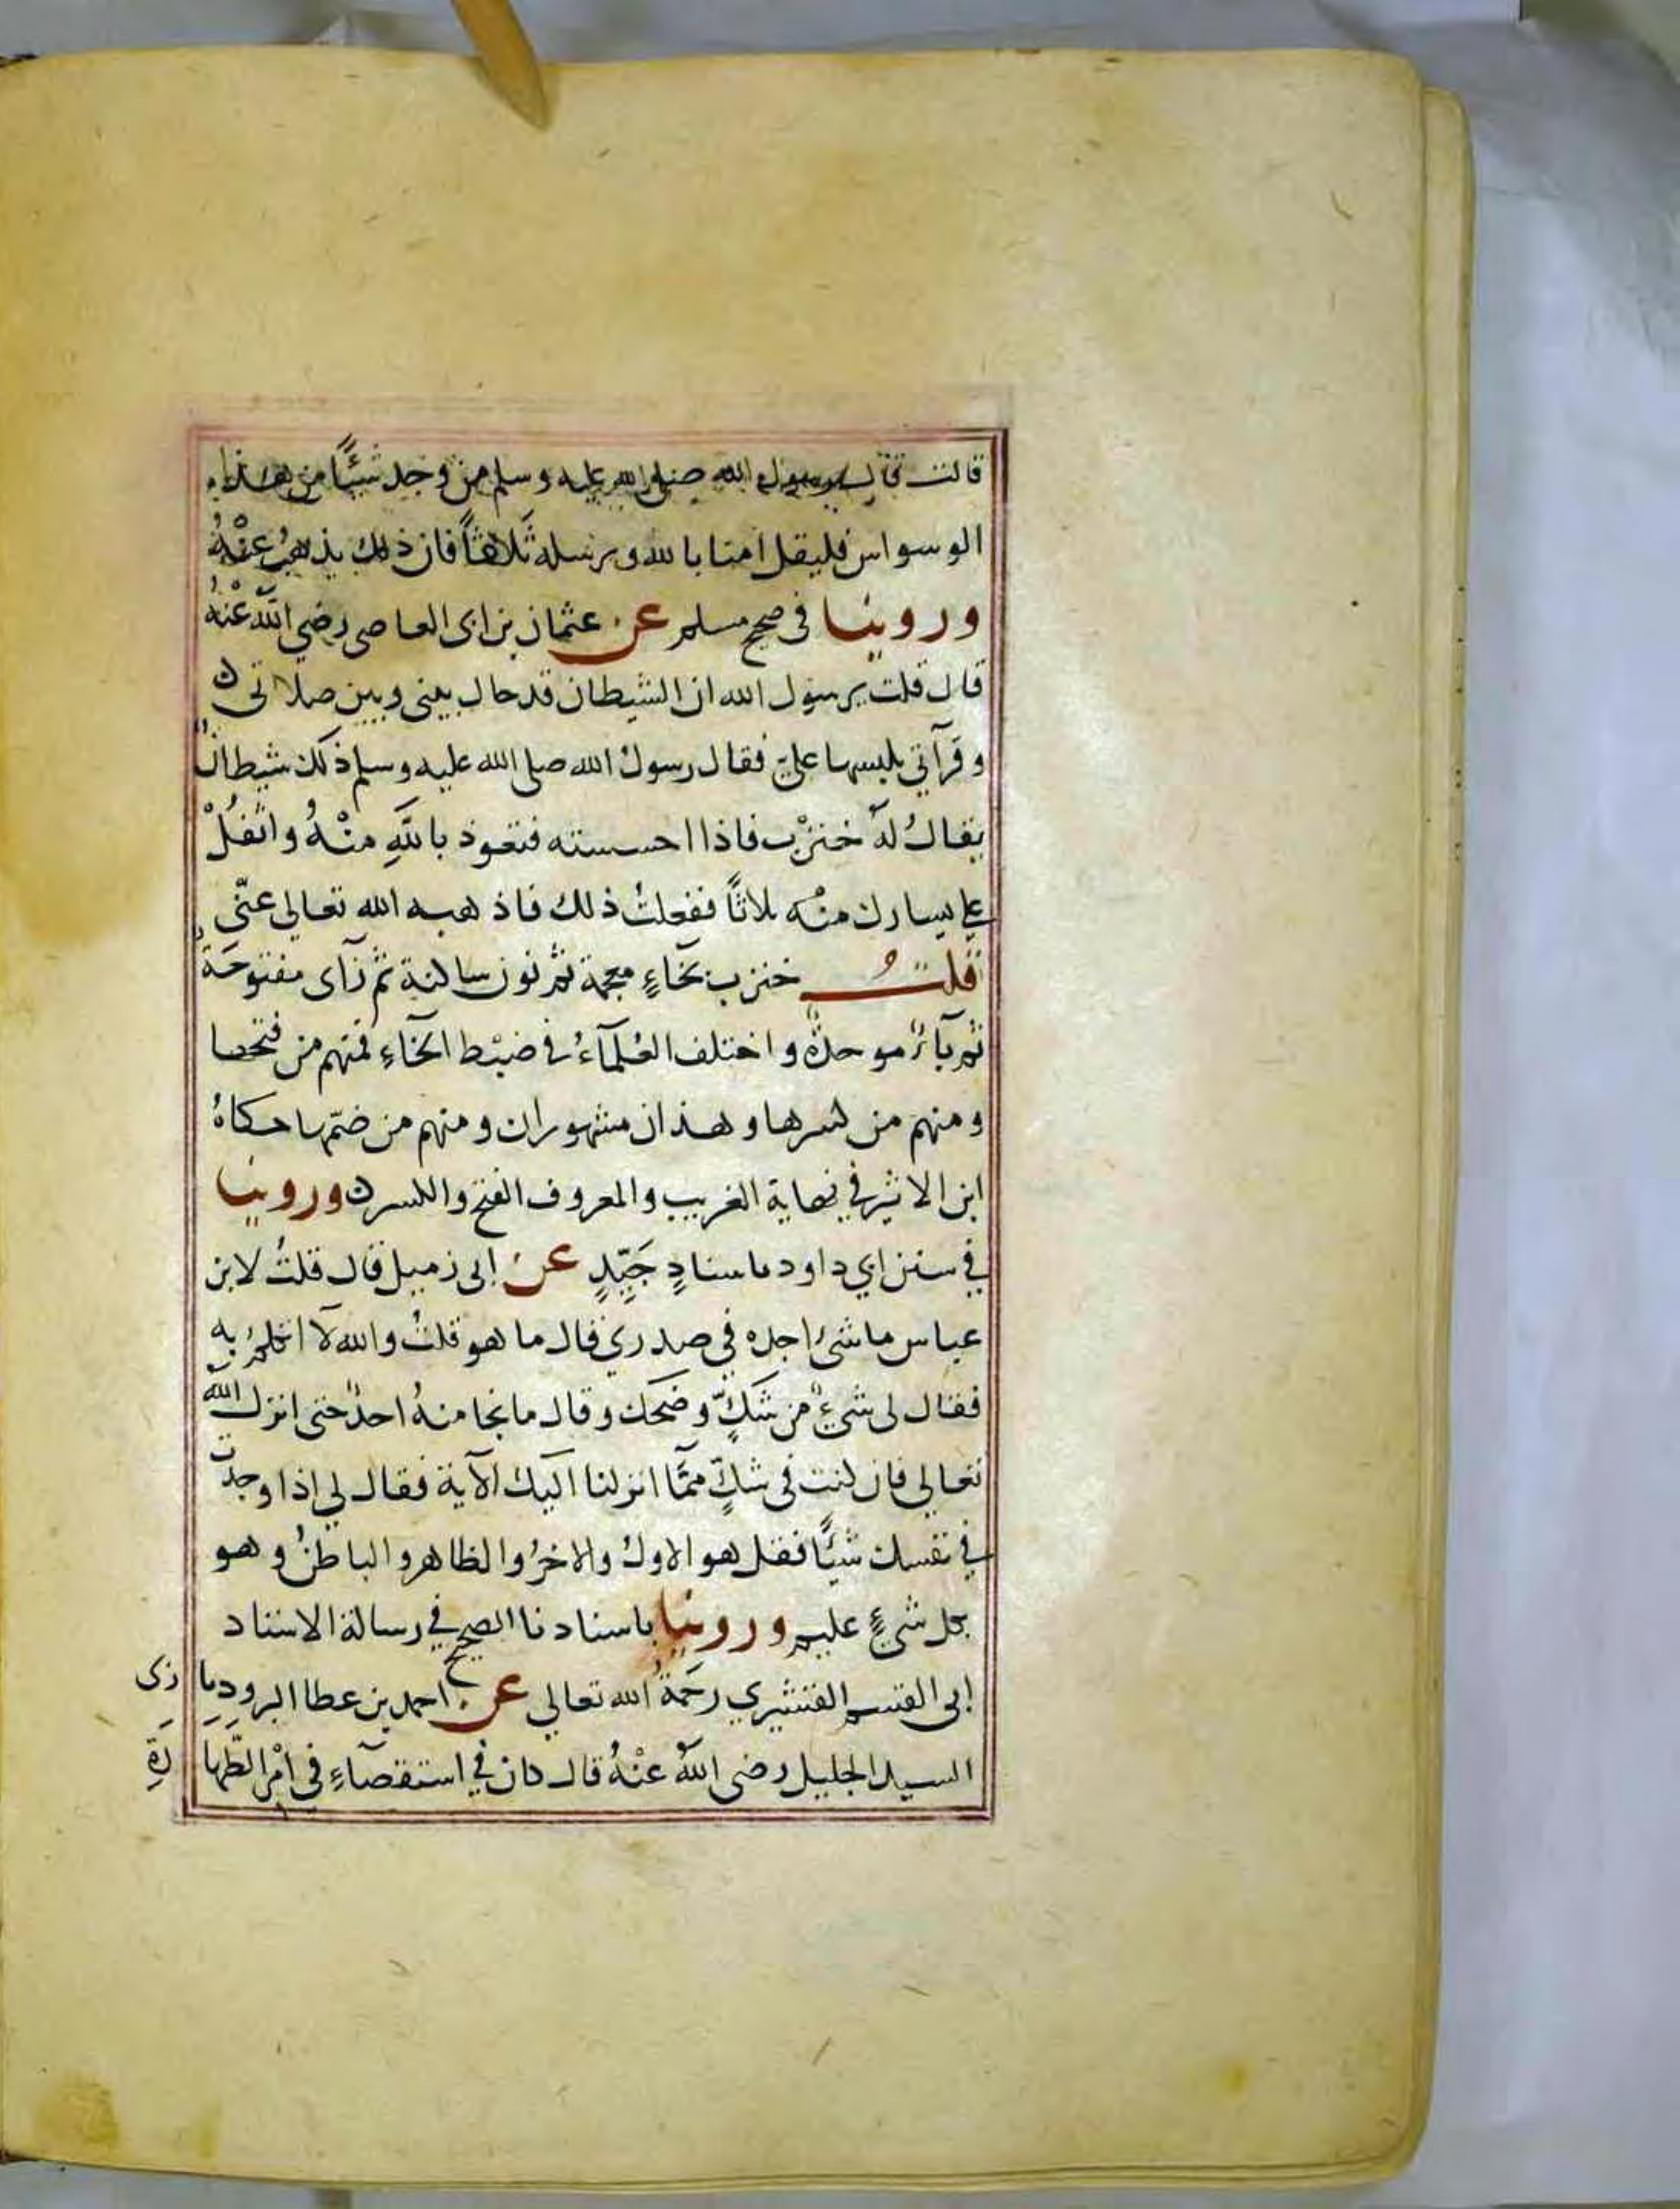 قالت قال رسول الله صلى الله عليه وسلم من وجد شيئًا من هذا
الوسواس فليقل امنا بالله وبرسله ثلاثًا فان ذلك يذهب عنْهُ
وروينا في صحيح مسلم عن عثمان بن ابى العاصى رضي الله عنْهُ
قال قلت يرسول الله ان الشيطان قد حال بينى وبين صلاتى
وقرآتي يلبسها عليّ فقال رسولُ الله صلى الله عليه وسلم ذلك شيطانٌ
يقالُ لهُ خنزْب فاذا احسسته فتعوذ باللهِ منْهُ واتْفُلْ
على يسارك منْه ثلاثًا ففعلتُ ذلك فاذهبه الله تعالى عنّى
قلتُ خنزب بخآءٍ معجمة ثم نون ساكنة ثم زآى مفتوحة
ثم بآءٌ موحدةٌ واختلف العُلمآءُ في ضبْط الخآءِ فمنهم من فتحها
ومنهم من كسرها وهذان مشهوران ومنهم من ضمّها حكاهُ
ابن الاثير في نهاية الغريب والمعروف الفتح والكسر وروينا
في سنن ابي داود باسنادٍ جَيّدٍ عن ابى زميل قال قلتُ لابن
عباس ما شئ اجده في صدري قال ما هو قلتُ والله لآ اتكلم به
فقال لى شيءٌ من شكٍّ وضحك وقال ما نجا منهُ احدٌ حتى انزل اللهُ
تعالى فان كنت في شكٍّ ممّا انزلنا اليك الآية فقال لي اذا وجدت
في نفسك شيئًا فقل هو الاولُ والاخرُ والظاهر والباطنُ وهو
بكل شيءٍ عليم وروينا باسنادنا الصحيح في رسالة الاستاد
ابى القسم القشيري رحمَةُ الله تعالى عن احمد بن عطا الروذبا زى
السيد الجليل رضى اللهُ عنْهُ قال كان في استقصآءٍ في امْر الطَّهَا رَةِ